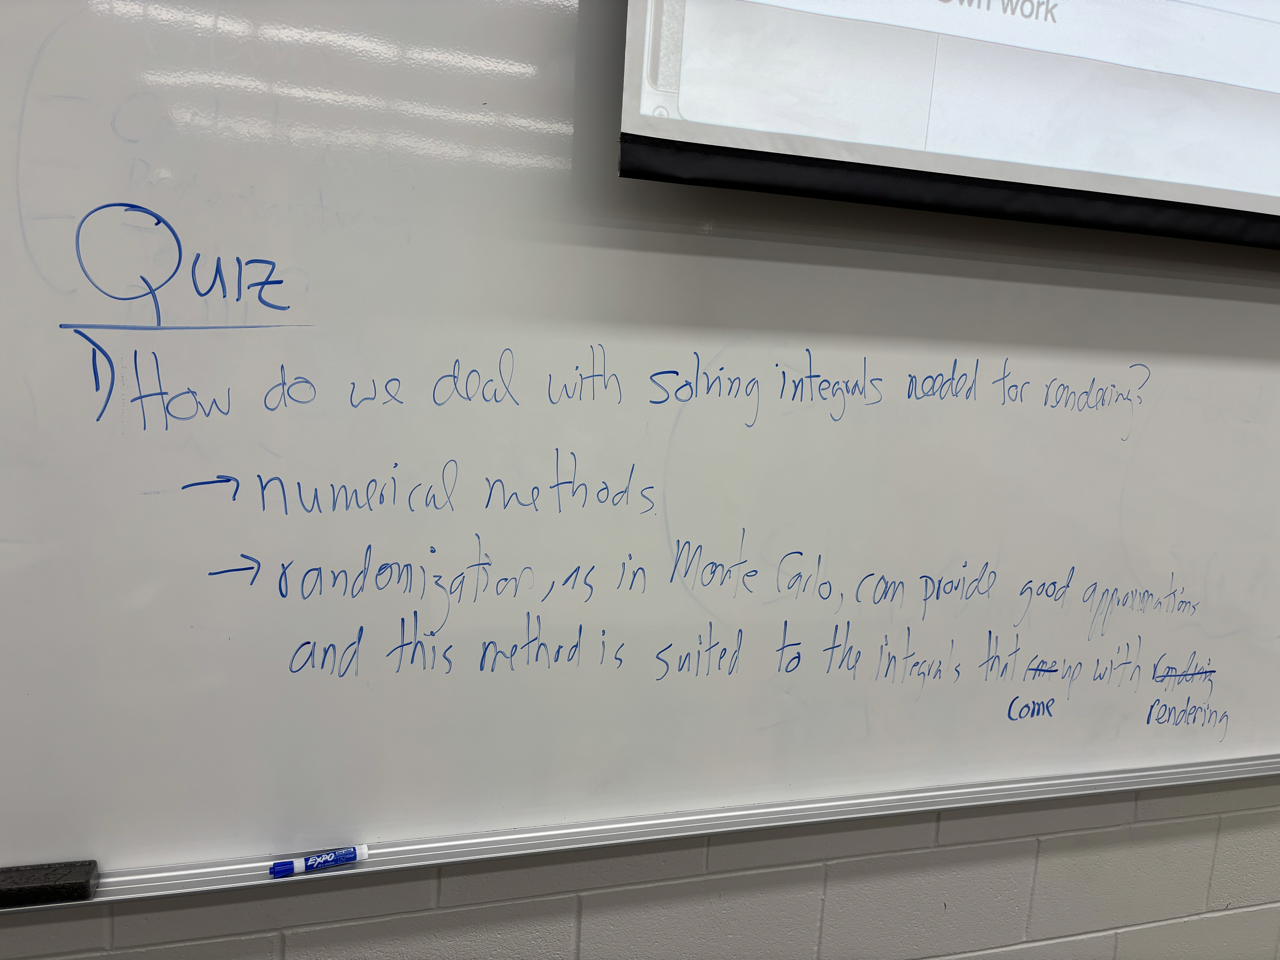 own work
Quiz
1) How do we deal with solving integrals needed for rendering?
→ numerical methods.
→ randomization, as in Monte Carlo, can provide good approximations
and this method is suited to the integrals that come up with rendering
come rendering
EXPO